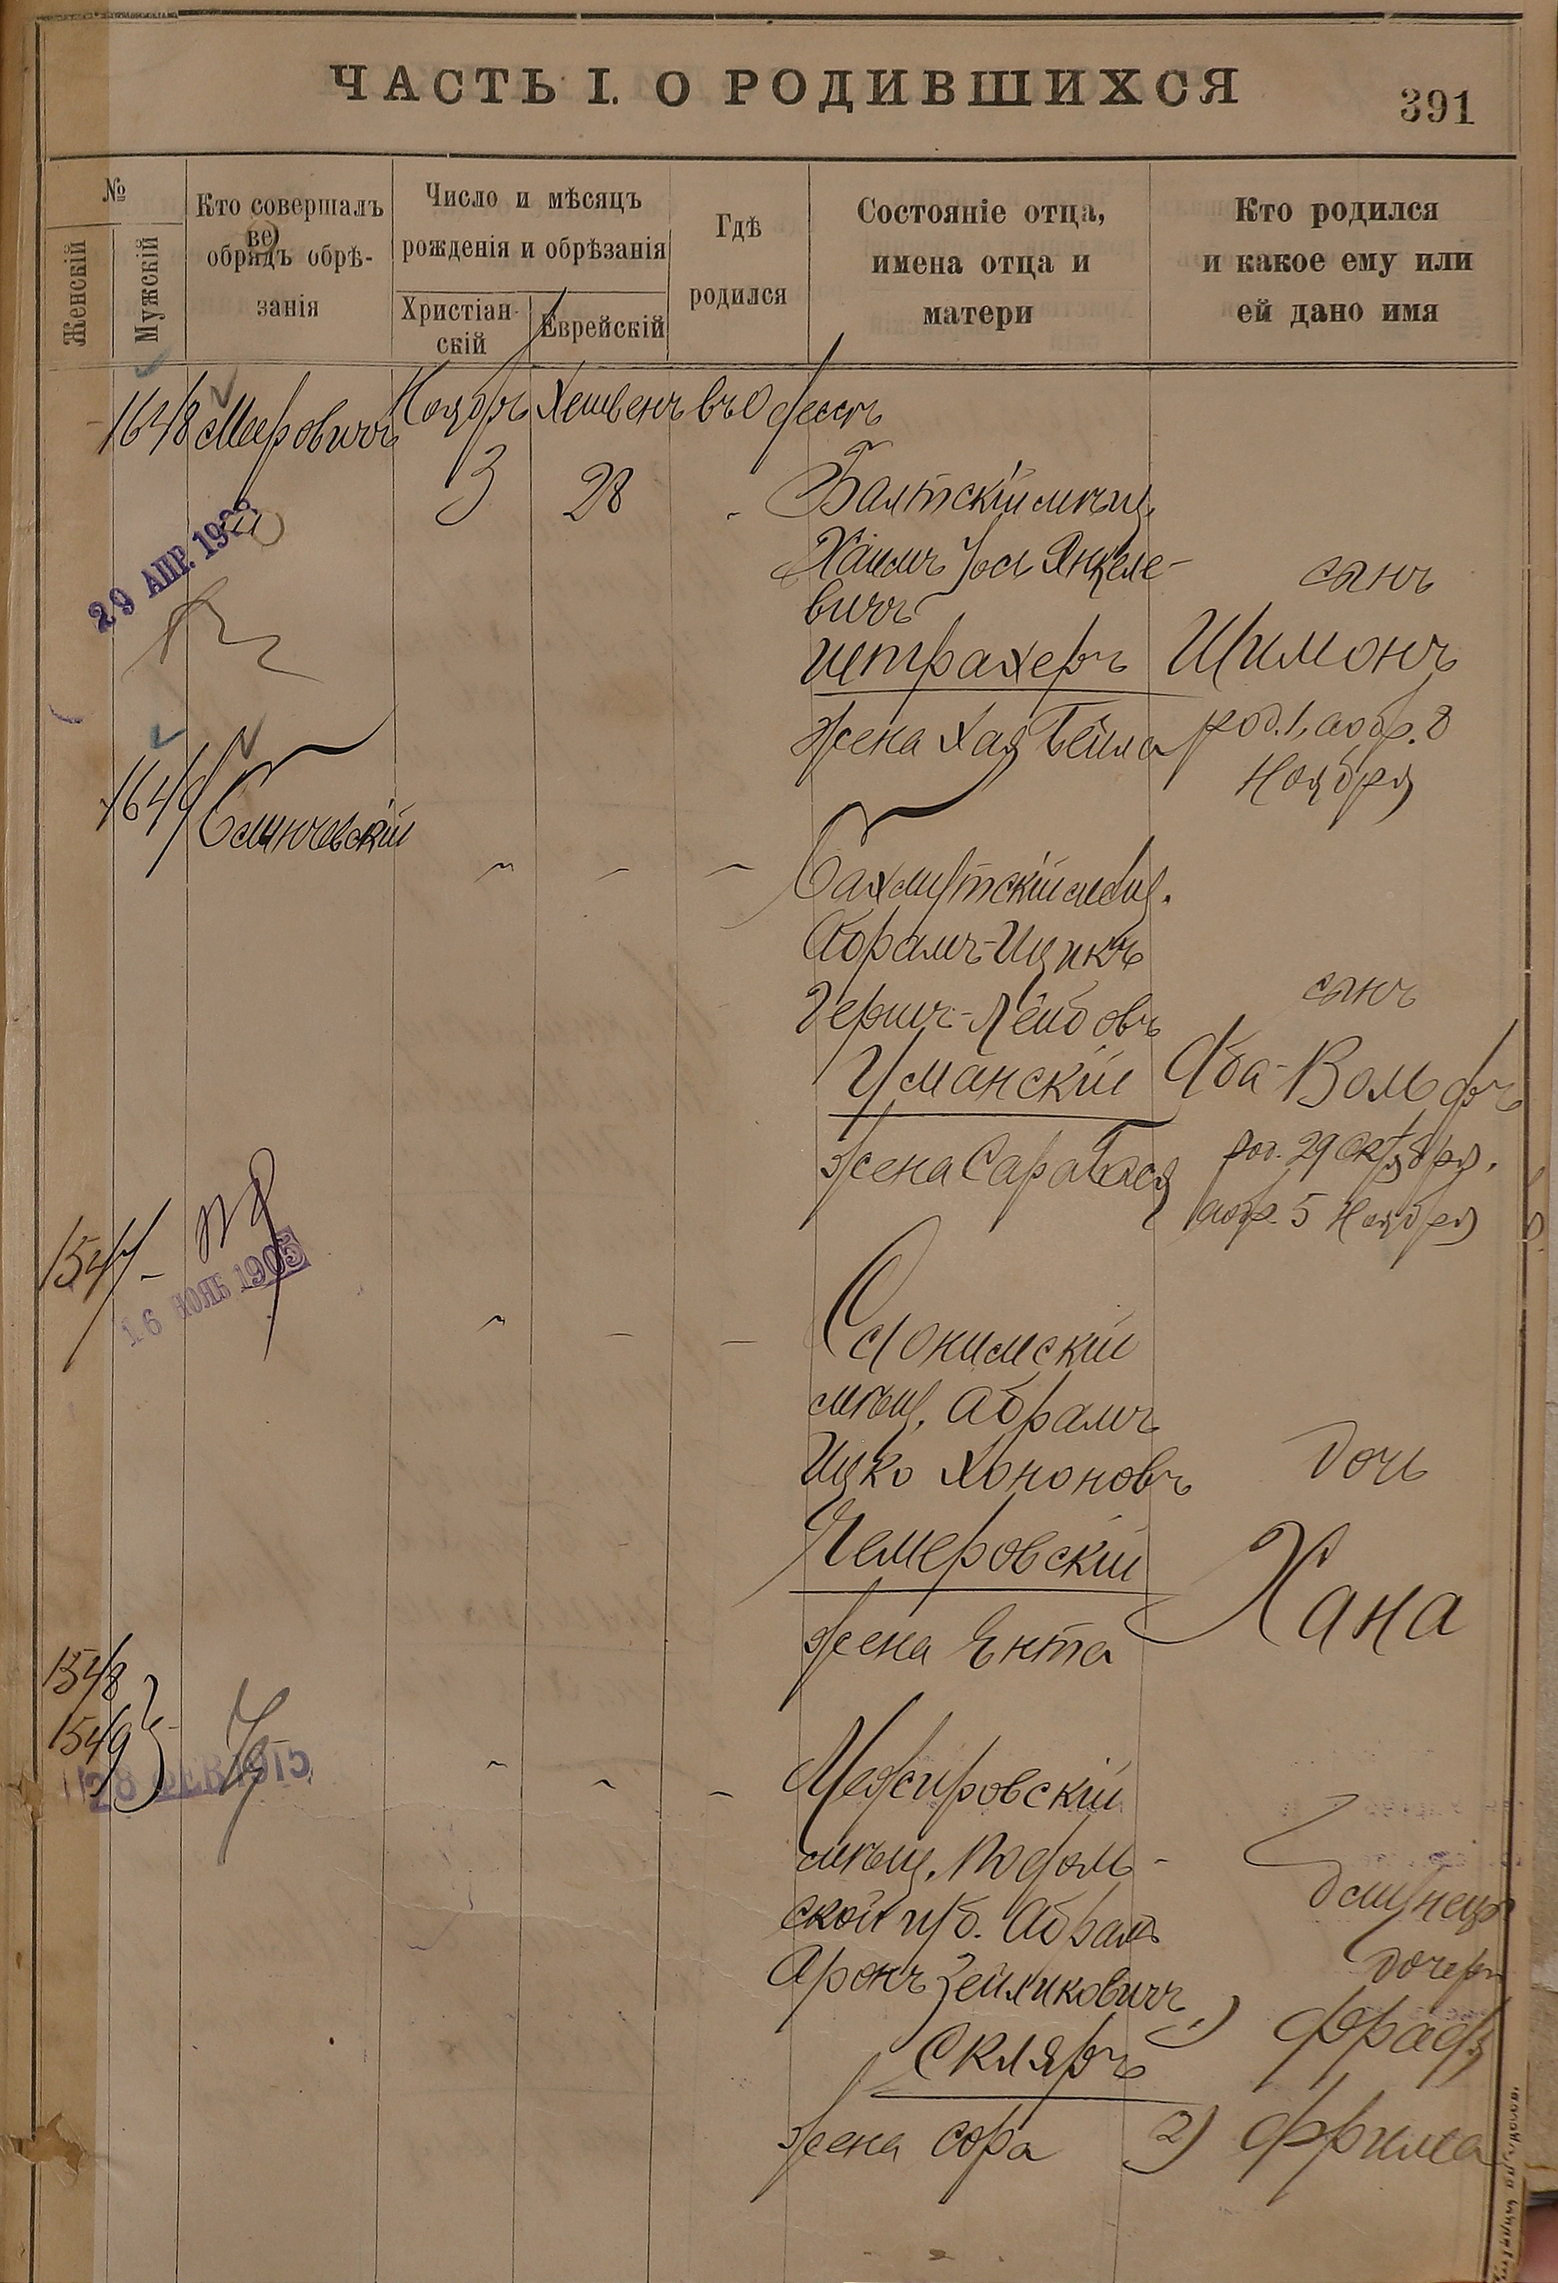 ЧАСТЬ I. О РОДИВШИХСЯ
391
№
Женскій
Мужскій
Кто совершалъ
обрядъ обрѣ-
занія
Число и мѣсяцъ
рожденія и обрѣзанія
Христіан-
скій
Еврейскій
Гдѣ
родился
Состояніе отца,
имена отца и
матери
Кто родился
и какое ему или
ей дано имя
1648 Меерович Ноябрь Хешвенъ въ Одессѣ
3 28
Балтскій мѣщ.
Хаимъ Іось Янкеле-
вичъ
Штрахеръ
жена Хая Бейла
сынъ
Шимонъ
род. 1, а обр. 8
Ноября
29 АПР.
1649
Бахмутскій мѣщ.
Абрамъ-Ицикъ
Гершъ-Лейбовъ
Уманскій
жена Сара Бася
сынъ
Аба-Вольфъ
род. 29 Октября,
а обр. 5 Ноября
1547
16 НОЯБ 1905
Слонимскій
мѣщ. Абрамъ
Ицко Хононовъ
Чемеровскій
жена Ента
дочь
Хана
1548
1549
28 ФЕВ 1915
Межировскій
мѣщ. Подоль-
ской губ. Абрамъ
Аронъ Зейликовичъ
Скляръ
жена Сора
близнецы
дочери
1) Фрадя
2) Фрима